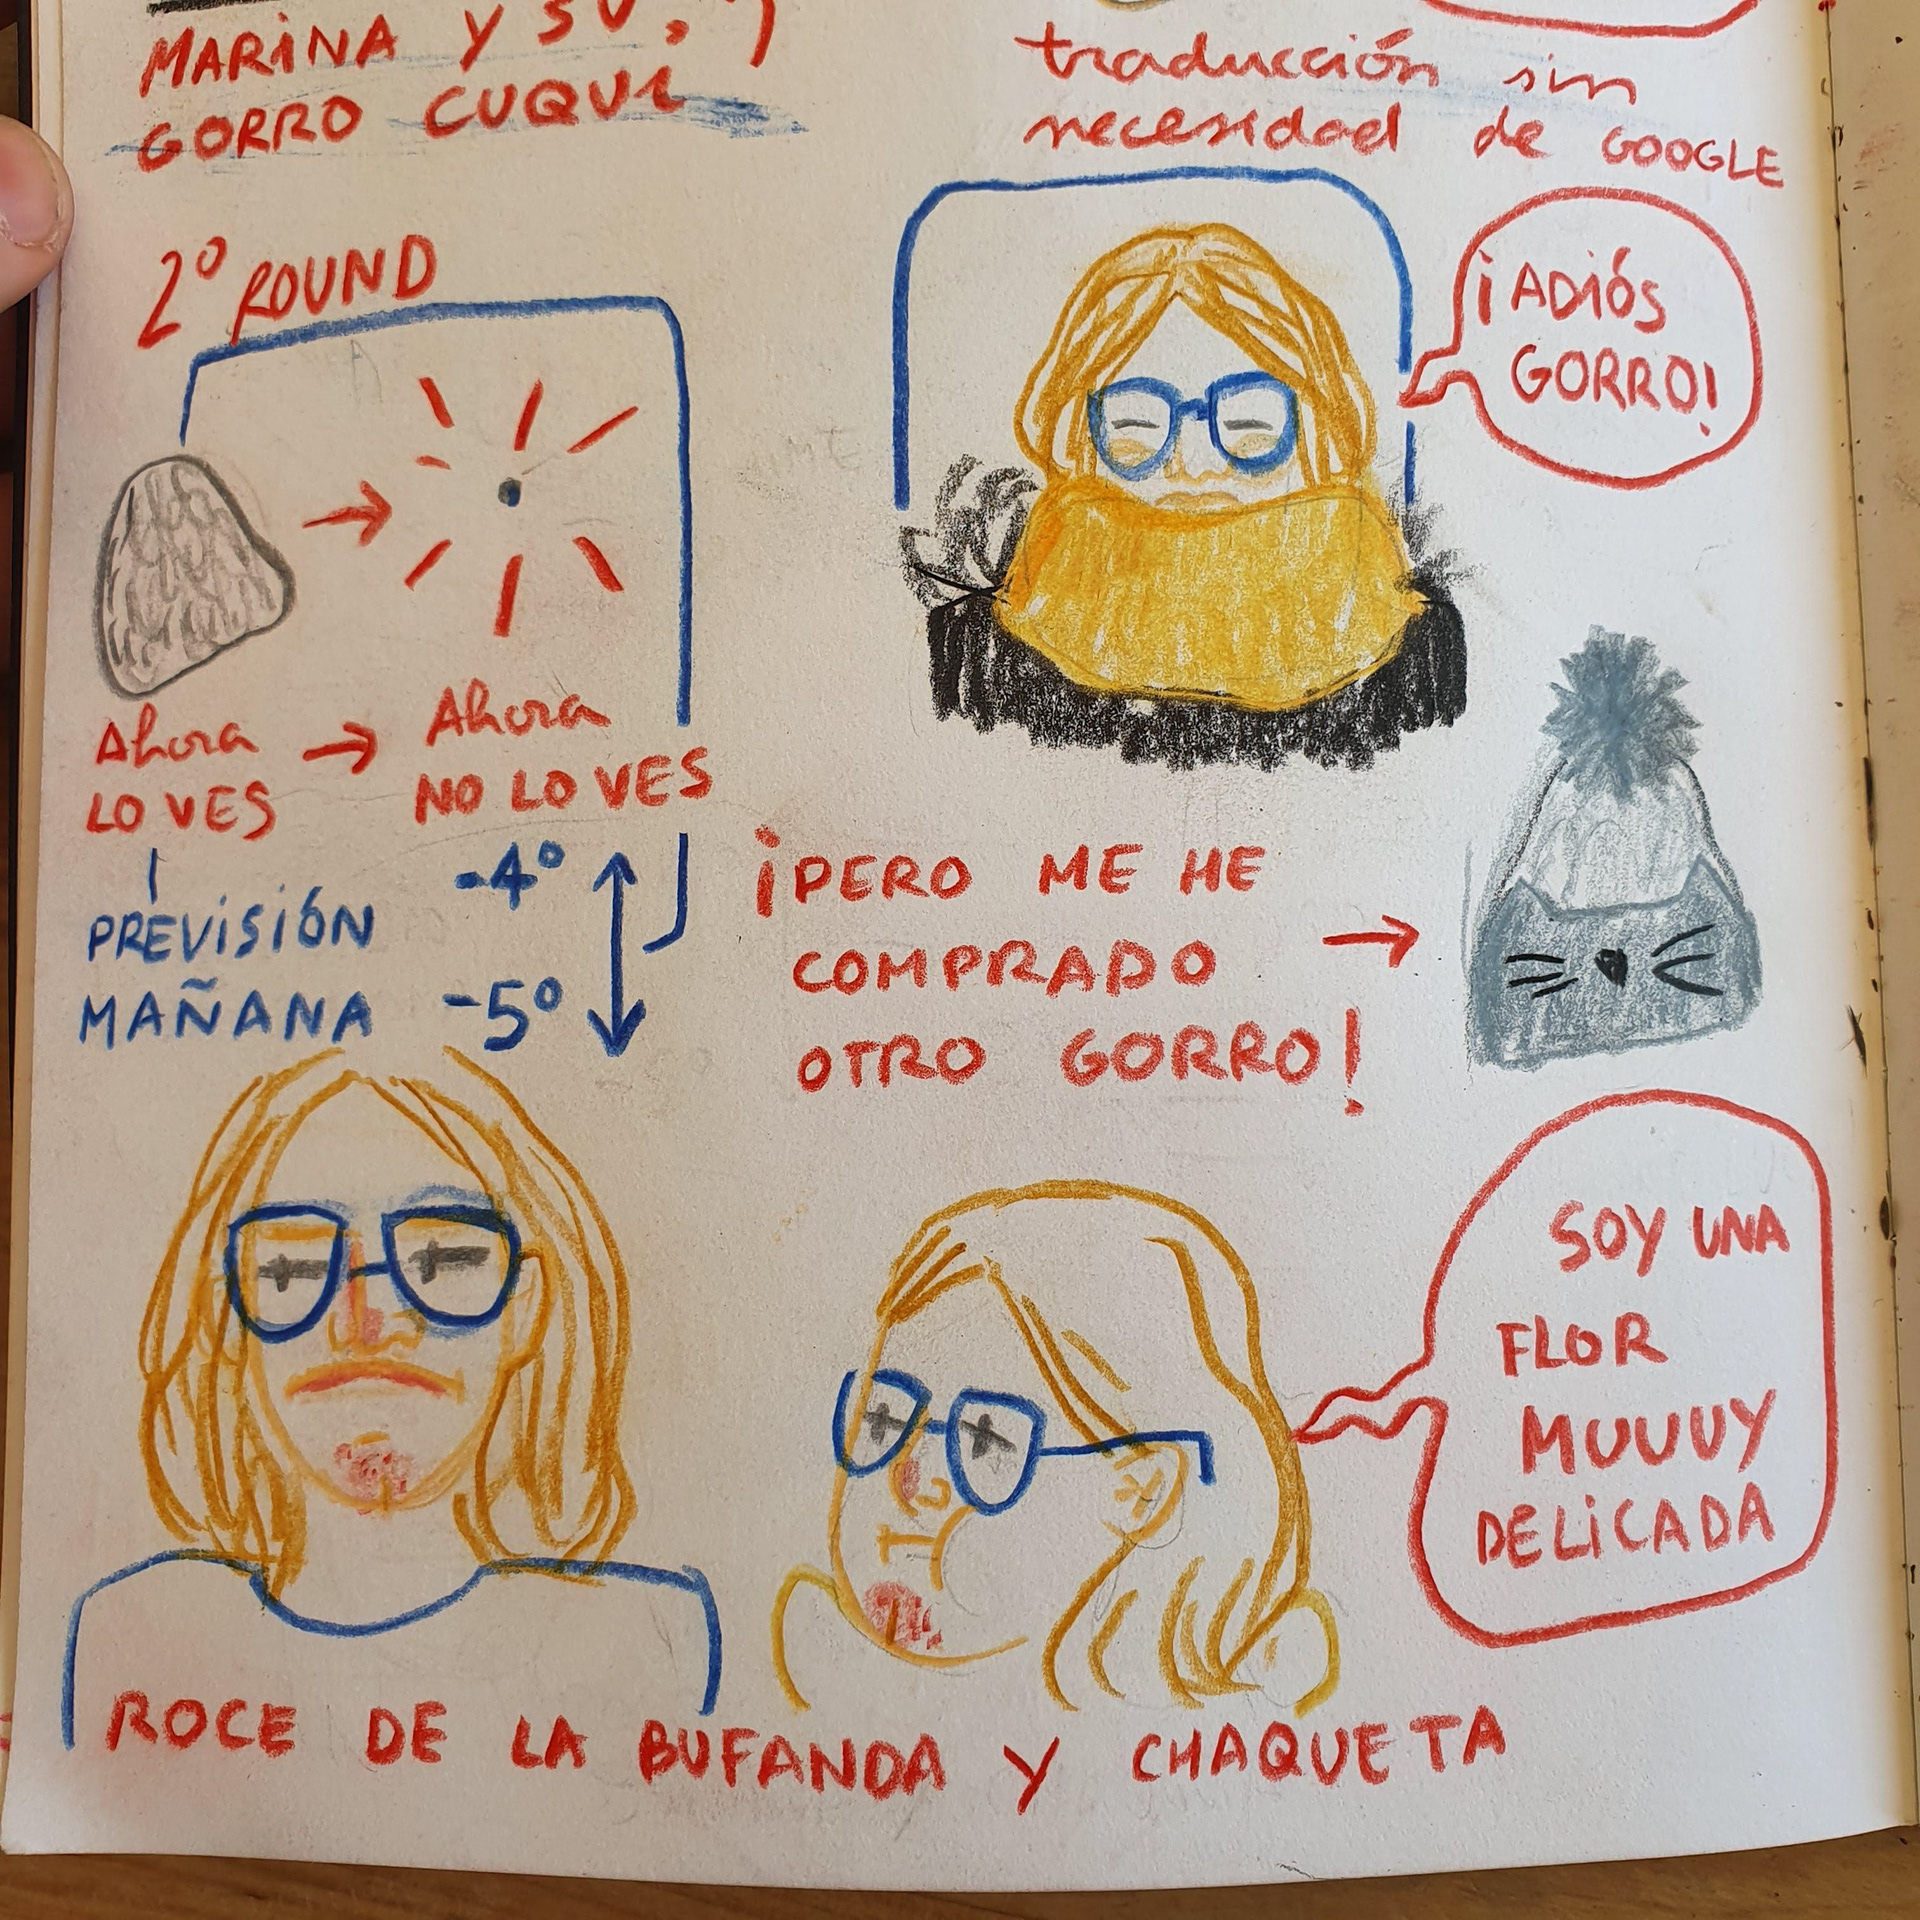 MARINA Y SU
GORRO CUQUI
traducción sin
necesidad de GOOGLE
2º ROUND
¡ADIÓS
GORRO!
Ahora
LO VES
Ahora
NO LO VES
PREVISIÓN
MAÑANA
-4º
-5º
¡PERO ME HE
COMPRADO
OTRO GORRO!
SOY UNA
FLOR
MUUUY
DELICADA
ROCE DE LA BUFANDA Y CHAQUETA